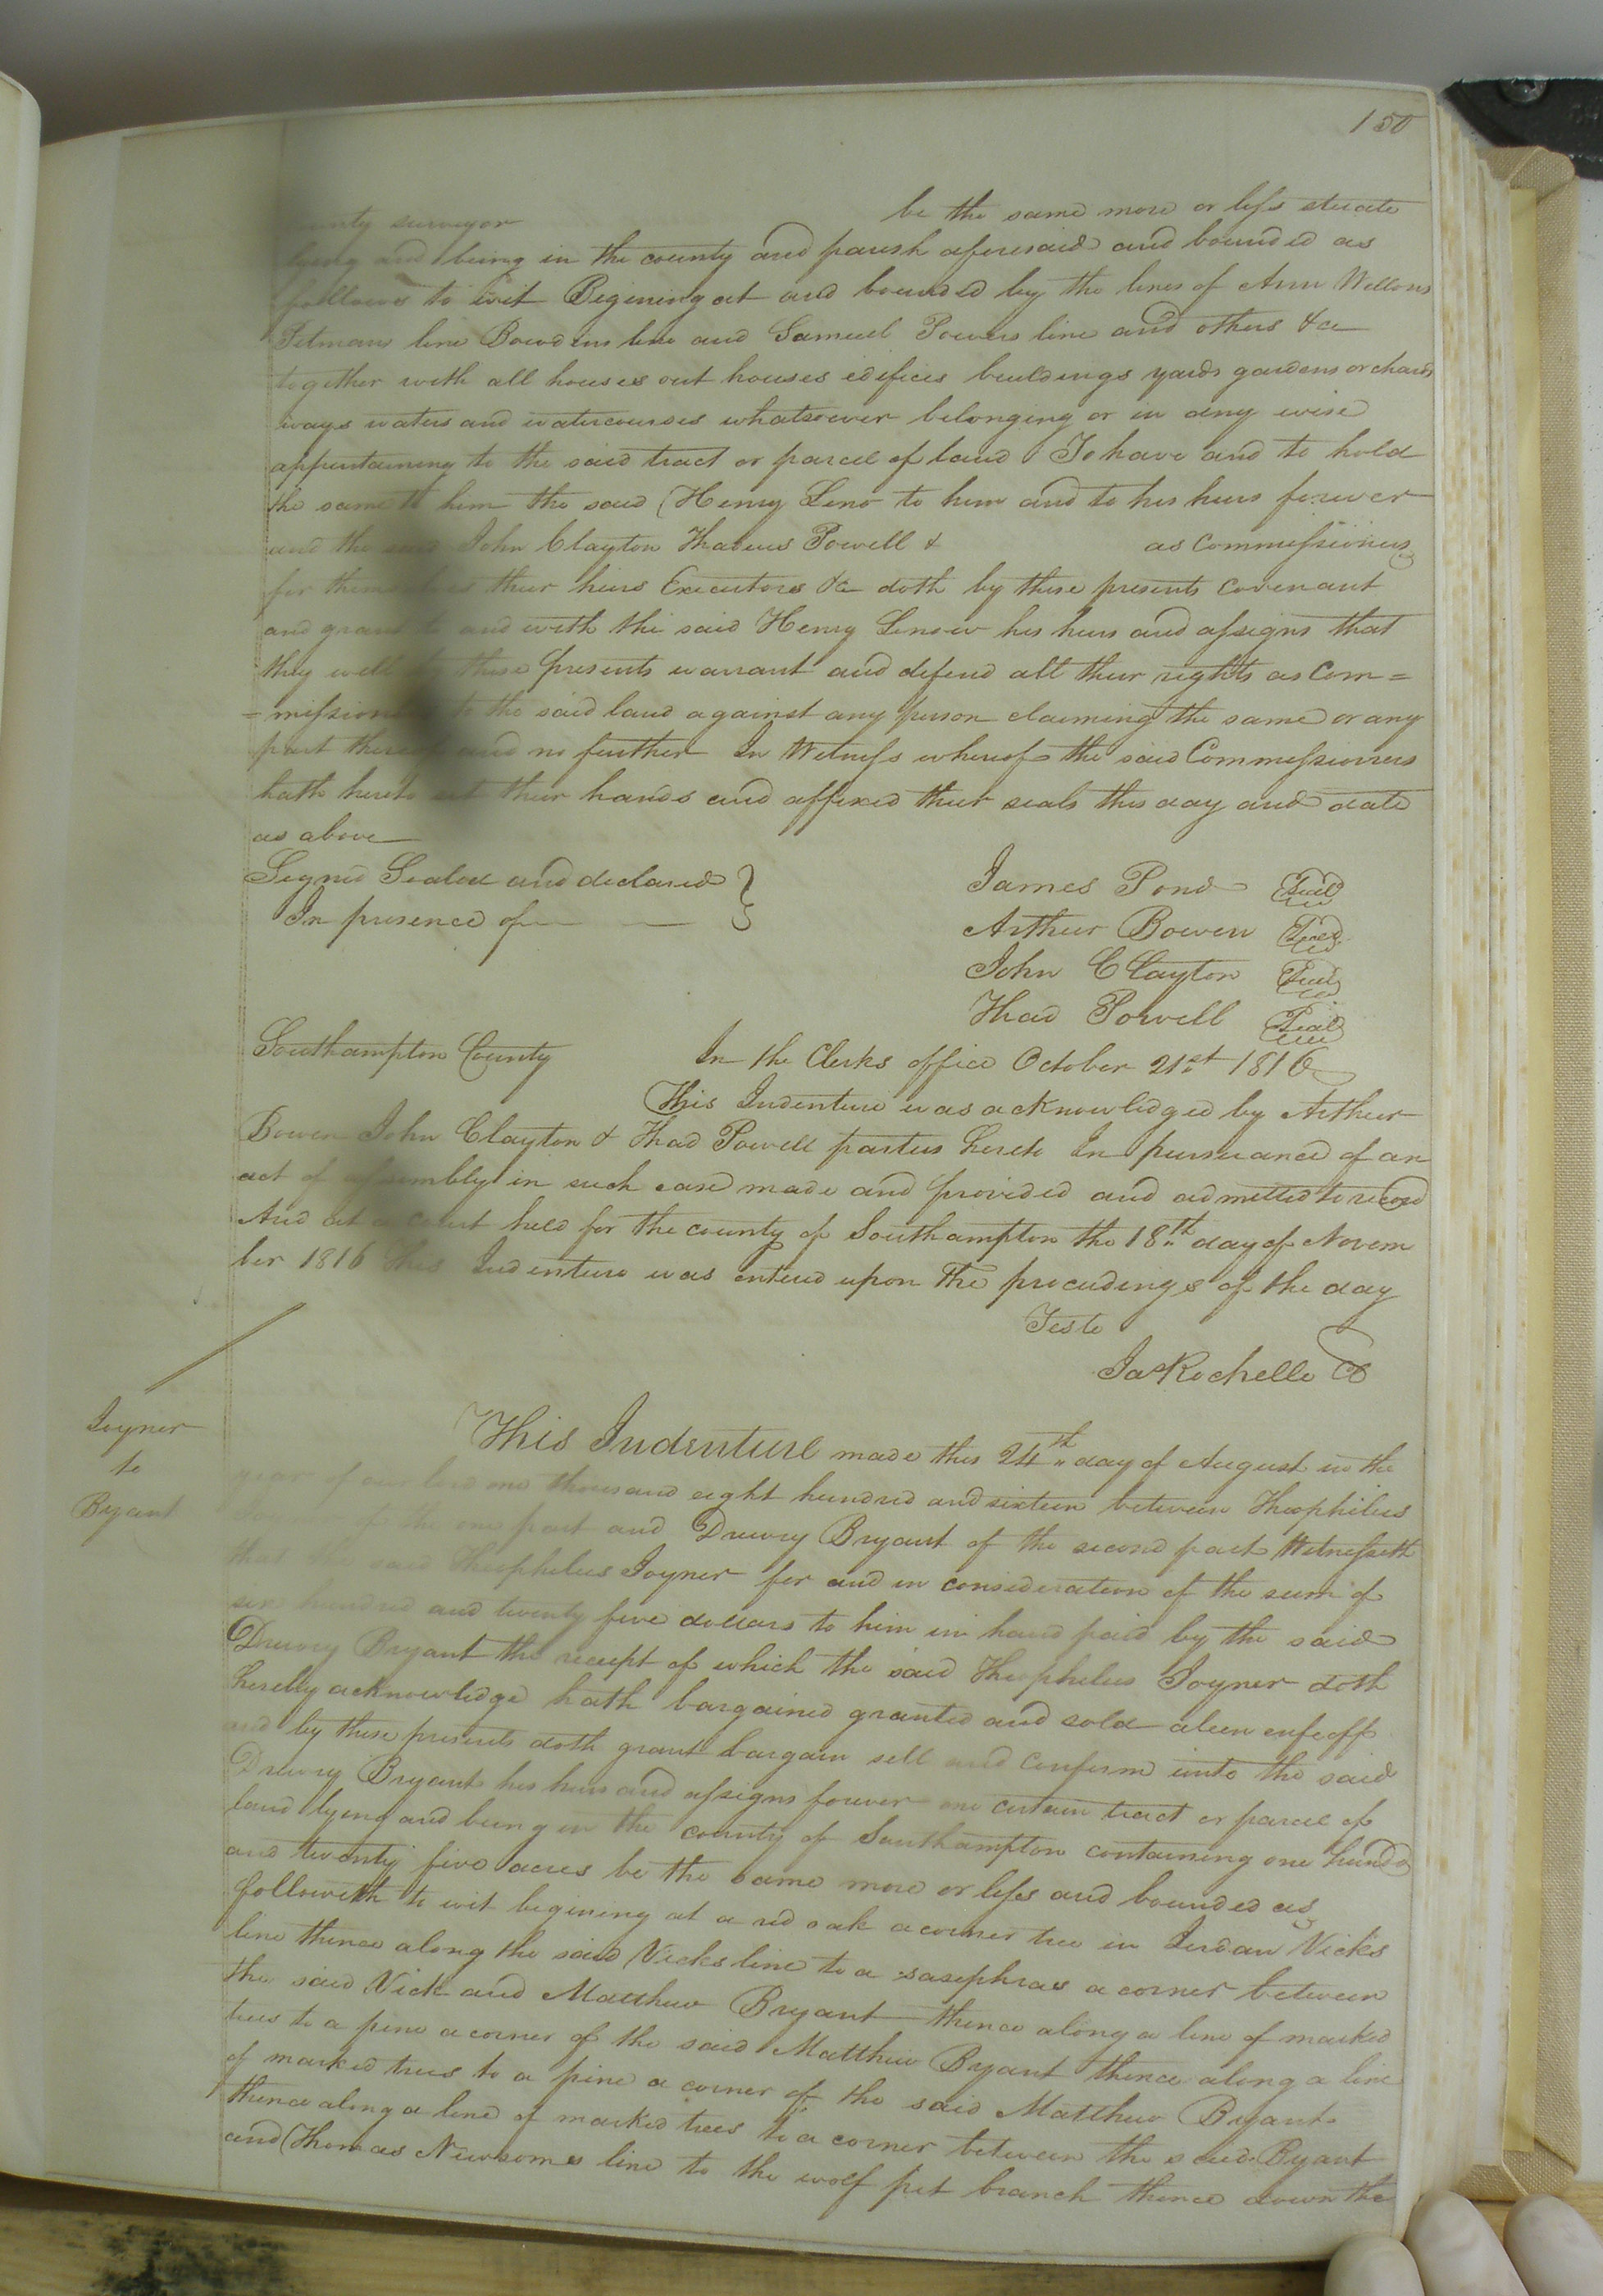 150
county surveyor be the same more or less situate
lying and being in the county and parish aforesaid and bounded as
follows to wit Begining at and bounded by the lines of Ann Wellons
Pitmans line Bowdens line and Samuel Powers line and others &c
together with all houses out houses edifices buildings yards gardens orchards
ways waters and watercourses whatsoever belonging or in any wise
appurtaining to the said tract or parcel of land To have and to hold
the same to him the said Henry Leno to him and to his heirs forever
and the said John Clayton Thadeus Powell & as Commissioners
for themselves their heirs Executors &c doth by these presents covenant
and grant to and with the said Henry Lenow his heirs and assigns that
they will by these presents warrant and defend all their rights as Com=
=missioners to the said land against any person claiming the same or any
part thereof and no further In Witness whereof the said Commissioners
hath hereto set their hands and affixed their seals this day and date
as above
Signed Sealed and declared
In presence of
James Pond Seal
Arthur Bowen Seal
John Clayton Seal
Thad Powell Seal
Southampton County In the Clerks office October 21st 1816
This Indenture was acknowledged by Arthur
Bowen John Clayton & Thad Powell parties hereto In pursuance of an
act of assembly in such case made and provided and admitted to record
And at a court held for the county of Southampton the 18th day of Novem
ber 1816 this Indenture was entered upon the proceedings of the day
Teste
Ja Rochelle
Joyner
to
Bryant
This Indenture made this 24th day of August in the
year of our lord one thousand eight hundred and sixteen between Theophilus
of the one part and Drewry Bryant of the second part Witnesseth
that the said Theophilus Joyner for and in consideration of the sum of
six hundred and twenty five dollars to him in hand paid by the said
Drewry Bryant the receipt of which the said Theophilus Joyner doth
hereby acknowledge hath bargained granted and sold alien enfeoff
and by these presents doth grant bargain sell and confirm unto the said
Drewry Bryant his heirs and assigns forever one certain tract or parcel of
land lying and being in the county of Southampton containing one hundd
and twenty five acres be the same more or less and bounded as
followith to wit begining at a red oak a corner tree in Jordan Vick's
line thence along the said Vicks line to a sasephras a corner between
the said Vick and Matthew Bryant thence along a line of marked
trees to a pine a corner of the said Matthew Bryant thence along a line
of marked trees to a pine a corner of the said Matthew Bryant
thence along a line of marked trees to a corner between the said Bryant
and Thomas Newsoms line to the wolf pit branch thence down the